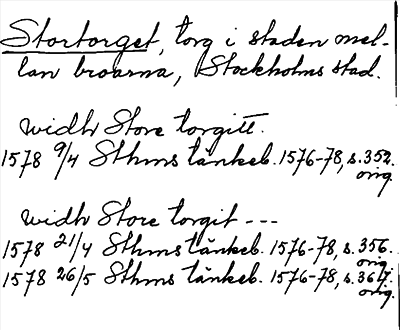 Stortorget, torg i staden mel-
lan broarna, Stockholms stad.
widh Store torgitt.
1578 9/4 Sthms tänkeb. 1576-78, s. 352.
orig.
widh Store torgit ---
1578 21/4 Sthms tänkeb. 1576-78, s. 356.
orig.
1578 26/5 Sthms tänkeb. 1576-78, s. 367.
orig.